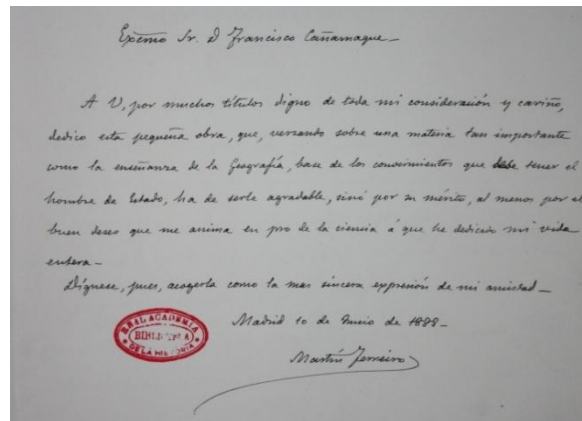 Excmo Sr. D Francisco Cañamaque_
A V, por muchos títulos digno de toda mi consideración y cariño,
dedico esta pequeña obra, que, versando sobre una materia tan importante
como la enseñanza de la Geografía, base de los conocimientos que debe tener el
hombre de Estado, ha de serle agradable, sinó por su mérito, al menos por el
buen deseo que me anima en pro de la ciencia á que he dedicado mi vida
entera_
Dígnese, pues, acogerla como la mas sincera expresión de mi amistad_
Madrid 10 de de 1888_
Martín Ferreiro
REAL ACADEMIA
BIBLIOTECA
DE LA HISTORIA